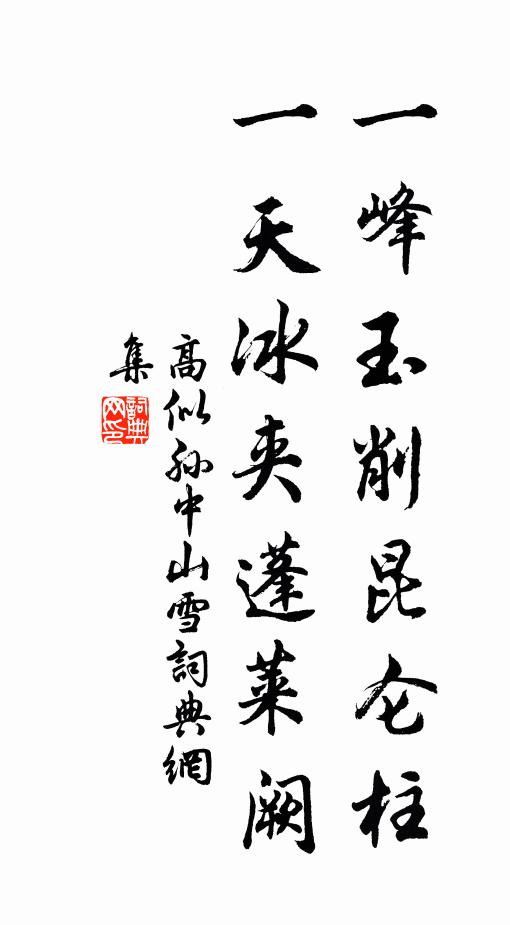 一峰玉削昆仑柱
一天冰夹蓬莱阙
高似孙中山雪詞典網
集
詞典網印